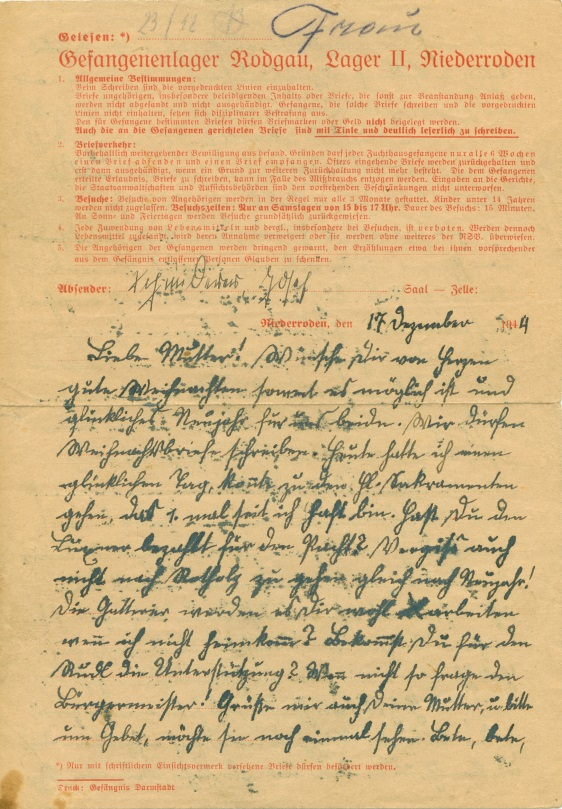 Gelesen: *) 23/12 Frau
Gefangenenlager Rodgau, Lager II, Niederroden
1. Allgemeine Bestimmungen:
Beim Schreiben sind die vorgedruckten Linien einzuhalten.
Briefe ungehörigen, insbesondere beleidigenden Inhalts oder Briefe, die sonst zur Beanstandung Anlaß geben,
werden nicht abgesandt und nicht ausgehändigt. Gefangene, die solche Briefe schreiben und die vorgedruckten
Linien nicht einhalten, setzen sich disziplinarer Bestrafung aus.
Den für Gefangene bestimmten Briefen dürfen Briefmarken oder Geld nicht beigelegt werden.
Auch die an die Gefangenen gerichteten Briefe sind mit Tinte und deutlich leserlich zu schreiben.
2. Briefverkehr:
Vorbehaltlich weitergehender Bewilligung aus besond. Gründen darf jeder Zuchthausgefangene nur alle 6 Wochen
einen Brief absenden und einen Brief empfangen. Öfters eingehende Briefe werden zurückbehalten und
erst dann ausgehändigt, wenn ein Grund zur weiteren Zurückhaltung nicht mehr besteht. Die dem Gefangenen
erteilte Erlaubnis, Briefe zu schreiben, kann im Falle des Mißbrauchs entzogen werden. Eingaben an die Gerichte,
die Staatsanwaltschaften und Aufsichtsbehörden sind den vorstehenden Beschränkungen nicht unterworfen.
3. Besuche: Besuche von Angehörigen werden in der Regel nur alle 3 Monate gestattet. Kinder unter 14 Jahren
werden nicht zugelassen. Besuchszeiten: Nur an Samstagen von 15 bis 17 Uhr. Dauer des Besuchs: 15 Minuten.
An Sonn- und Feiertagen werden Besuche grundsätzlich zurückgewiesen.
4. Jede Zuwendung von Lebensmitteln und dergl., insbesondere bei Besuchen, ist verboten. Werden dennoch
Lebensmittel zugesandt, wird deren Annahme verweigert oder sie werden ohne weiteres der NSV. überwiesen.
5. Die Angehörigen der Gefangenen werden dringend gewarnt, den Erzählungen etwa bei ihnen vorsprechender
aus dem Gefängnis entlassener Personen Glauben zu schenken.
Absender: Josef Saal — Zelle:
Niederroden, den 17 Dezember 1944
Liebe Mutter! Wünsche Dir von Herzen
gute Weihnachten soweit es möglich ist und
glückliches Neujahr für uns beide. Wir dürfen
Weihnachtsbriefe schreiben. Heute hatte ich einen
glücklichen Tag, konnte zu den Hl. Sakramenten
gehen, das 1. mal seit ich Haft bin. Hast Du den
bezahlt für den Pacht? Vergiß auch
nicht nach Rotholz zu gehen gleich nach Neujahr!
Die werden es Dir wohl arbeiten
wenn ich nicht heimkomm? Bekommst Du für den
Rudl die Unterstützung? Wenn nicht so frage den
Bürgermeister! Grüße mir auch Deine Mutter, u. bitte
um Gebet, möchte sie noch einmal sehen. Bete, bete,
*) Nur mit schriftlichem Einsichtsvermerk versehene Briefe dürfen befördert werden.
Druck: Gefängnis Darmstadt